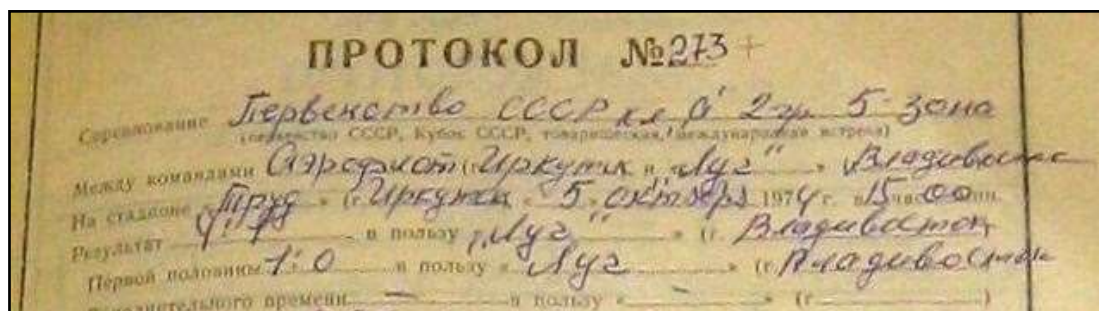 ПРОТОКОЛ №273
Соревнование Первенство СССР кл "А" 2 гр. 5 зона
(первенство СССР, Кубок СССР, товарищеская, международная встреча)
Между командами Аэрофлот (Иркутск и „Луч“ » Владивосток
На стадионе «Труд» (г. Иркутск « 5 » октября 1974 г. в 15 час 00 мин.
Результат в пользу „Луч“ » (г. Владивосток
Первой половины 1:0 в пользу « Луч » (г. Владивосток
Дополнительного времени — в пользу « — » (г. )